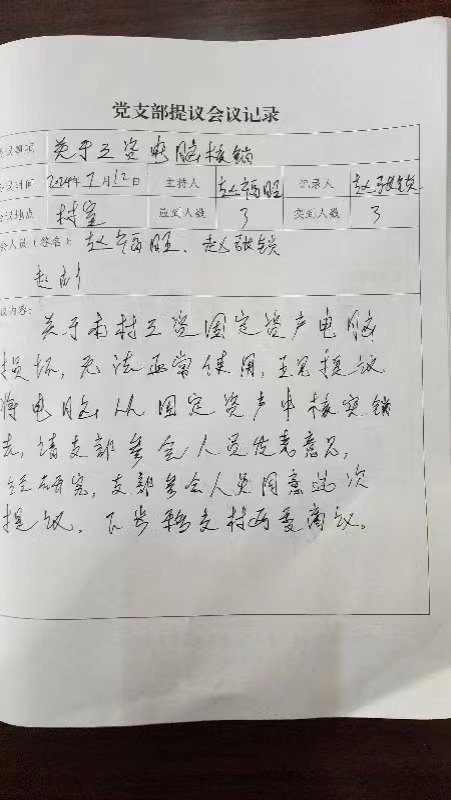 党支部提议会议记录
议事项 关于工资电脑核销
议时间 2024年7月12日 主持人 赵福旺 记录人 赵张锁
议地点 村室 应到人数 3 实到人数 3
会人员（签名）： 赵福旺、赵张锁
赵
议内容：
关于本村工资固定资产电脑
损坏，无法正常使用，现提议
将电脑从固定资产中核实销
去，请支部参会人员发表意见，
经研究，支部参会人员同意此次
提议，下步转交村两委商议。